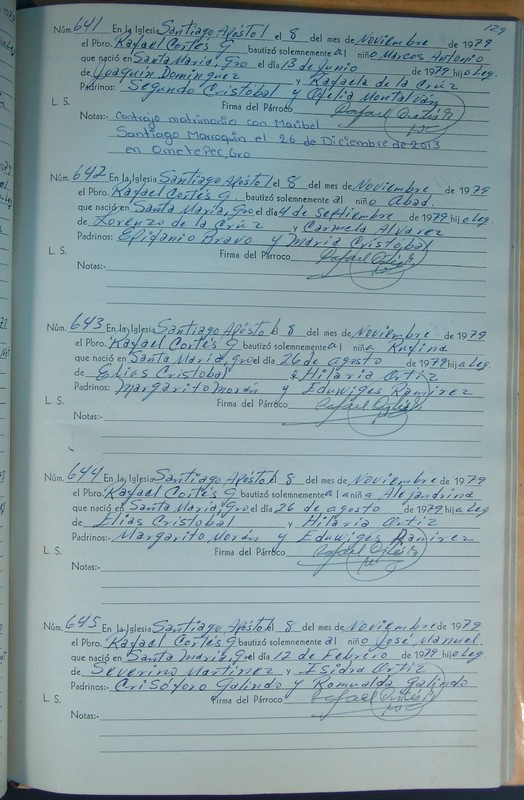 129
Núm. 641 En la Iglesia Santiago Apóstol el 8 del mes de Noviembre de 1979
el Pbro. Rafael Cortés G bautizó solemnemente al niño Marcos Antonio
que nació en Santa María, Gro el día 13 de Junio de 1979 hijo Leg.
de Joaquín Dominguez y Rafaela de la Cruz
Padrinos: Segundo Cristobal y Ofelia Montalván
L. S. Firma del Párroco
Notas: Contrajo matrimonio con Maribel
Santiago Marroquin el 26 de Diciembre de 2013
en Ometepec, Gro
Núm. 642 En la Iglesia Santiago Apóstol el 8 del mes de Noviembre de 1979
el Pbro. Rafael Cortés G bautizó solemnemente al niño Abad.
que nació en Santa María, Gro el día 4 de Septiembre de 1979 hijo Leg.
de Lorenzo de la Cruz y Carmela Alvarez
Padrinos: Epifanio Bravo y María Cristobal
L. S. Firma del Párroco
Notas:-
Núm. 643 En la Iglesia Santiago Apóstol el 8 del mes de Noviembre de 1979
el Pbro. Rafael Cortés G bautizó solemnemente a l niña Rufina
que nació en Santa María, Gro el día 26 de agosto de 1979 hija Leg.
de Elias Cristobal e Hilaria Ortiz
Padrinos: Margarito Morán y Eduwiges Ramirez
L. S. Firma del Párroco
Notas:-
Núm. 644 En la Iglesia Santiago Apóstol el 8 del mes de Noviembre de 1979
el Pbro. Rafael Cortés G bautizó solemnemente a la niña Alejandrina
que nació en Santa María, Gro el día 26 de agosto de 1979 hija Leg.
de Elías Cristobal y Hilaria Ortiz
Padrinos:- Margarito Morán y Eduwiges Ramirez
L. S. Firma del Párroco
Notas:-
Núm. 645 En la Iglesia Santiago Apóstol el 8 del mes de Noviembre de 1979
el Pbro. Rafael Cortés G bautizó solemnemente al niño José Manuel.
que nació en Santa María, Gro el día 12 de Febrero de 1979 hijo Leg.
de Severino Martinez y Isidra Ortiz
Padrinos:- Crisóforo Galindo y Romualda Galindo
L. S. Firma del Párroco
Notas:-